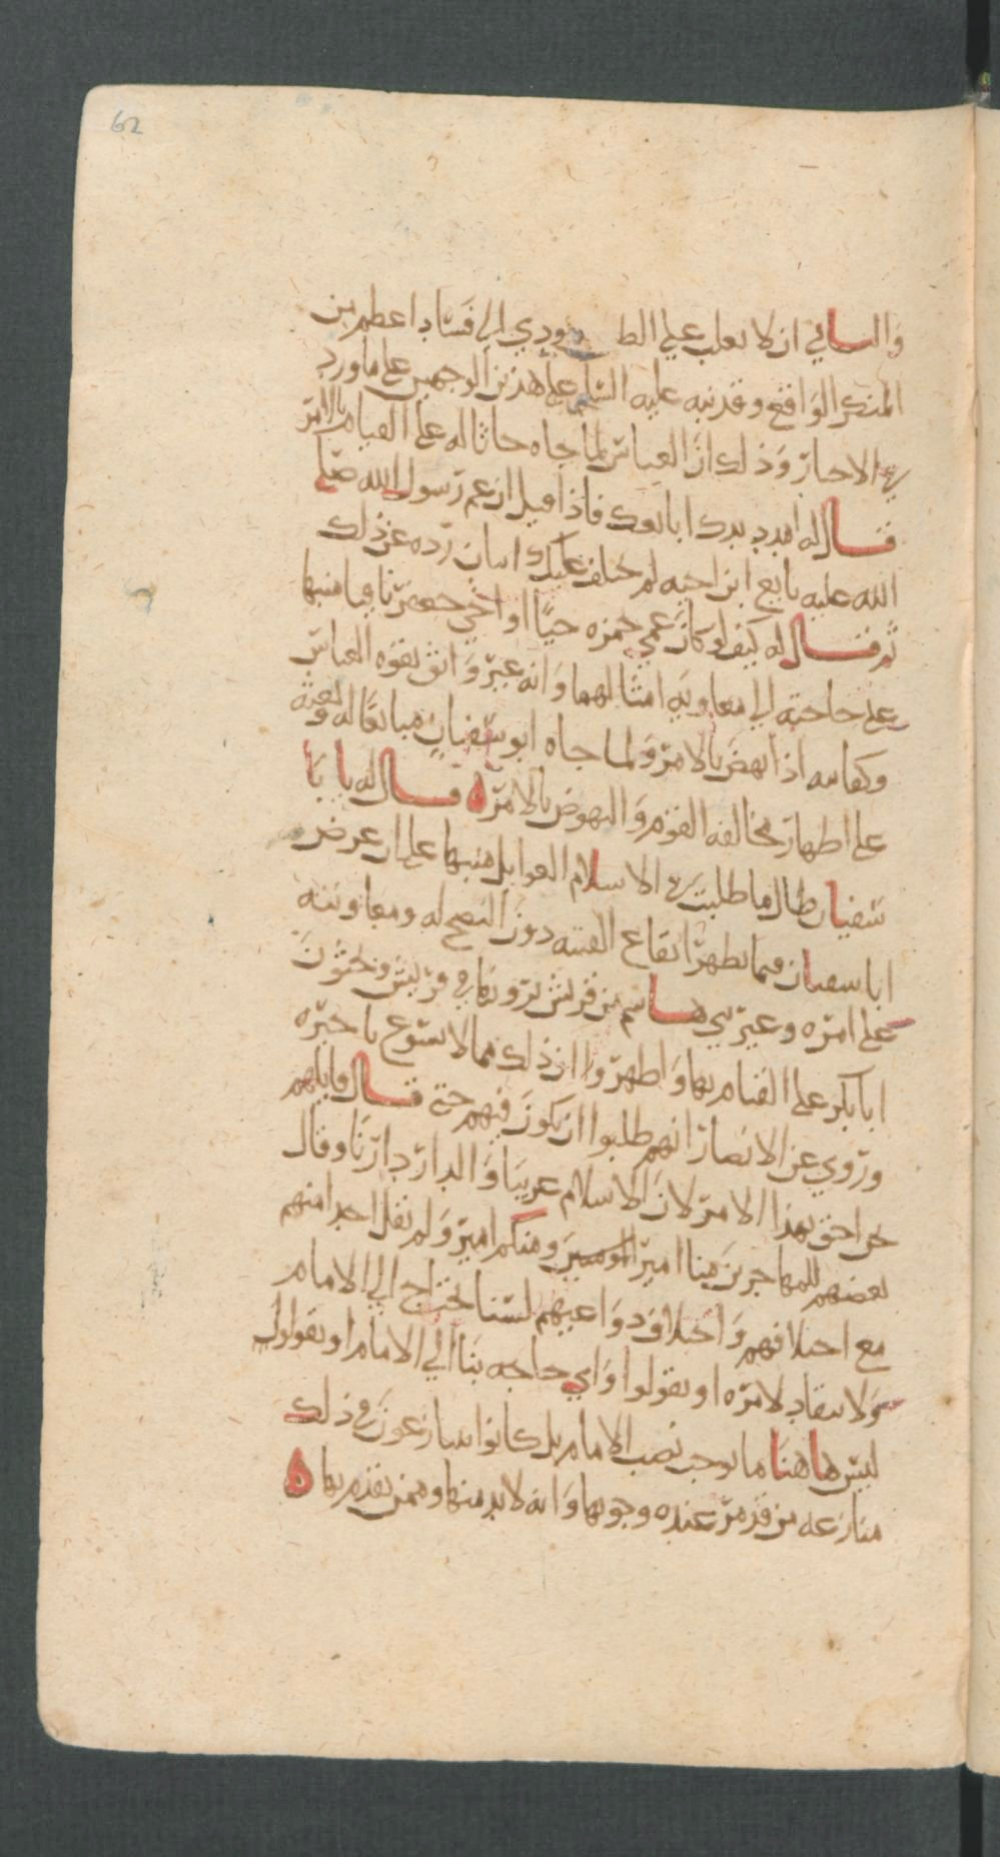 62
والثاني ان لا يغلب على الظ يودي الى فساد اعظم من
المنكر الواقع وقد نبه عليه السلم على هذين الوجهين على ما ورد
في الاخبار وذلك ان العباس لما جاه حاثا له على القيام بالامر
قال له امدد يدك ابايعك فاذا قيل ان عم رسول الله صلى
الله عليه بايع ابن اخيه لم يختلف عليك اثنان رده عن ذلك
ثم فقال له كيف لو كان عمي حمزه حيا او اخي جعفر باقيا منبها
على حاجته الى معاونه امثالهما وانه غير واثق بقوه العباس
وكفايته اذا نهض بالامر ولما جاه ابو سفيان مبايعا له
على اظهار مخالفه القوم والنهوض بالامره قال له يا با
سفيان طال ما طلبت في الاسلام الغوايل منبها على ان غرض
ابا سفيان فيما يظهر ايقاع الفتنه دون النصح له ومعاونته
على امره وغير بني هاشم من قريش يرونها في قريش ويحثون
ابا بكر على القيام بها واظهروا ان ذلك مما لا يسوغ تاخيره
وروي عن الانصار انهم طلبوا ان يكون فيهم حتى قال قايلهم
نحن احق بهذا الامر لان الاسلام عربنا والدار دارنا وقال
بعضهم للمهاجرين منا امير ومنكم امير ولم نقل احدا منهم
مع اختلافهم واختلاف دواعيهم لسنا نحتاج الى الامام
ولا ننقاد لامره او يقولوا واي حاجه بنا الى الامام او يقولوا
ليس هاهنا ما يوجب نصب الامام بل كانوا يتنازعون في ذلك
منازعه من قد مر عنده وجوبها وانه لا بد منها وممن يقوم بها